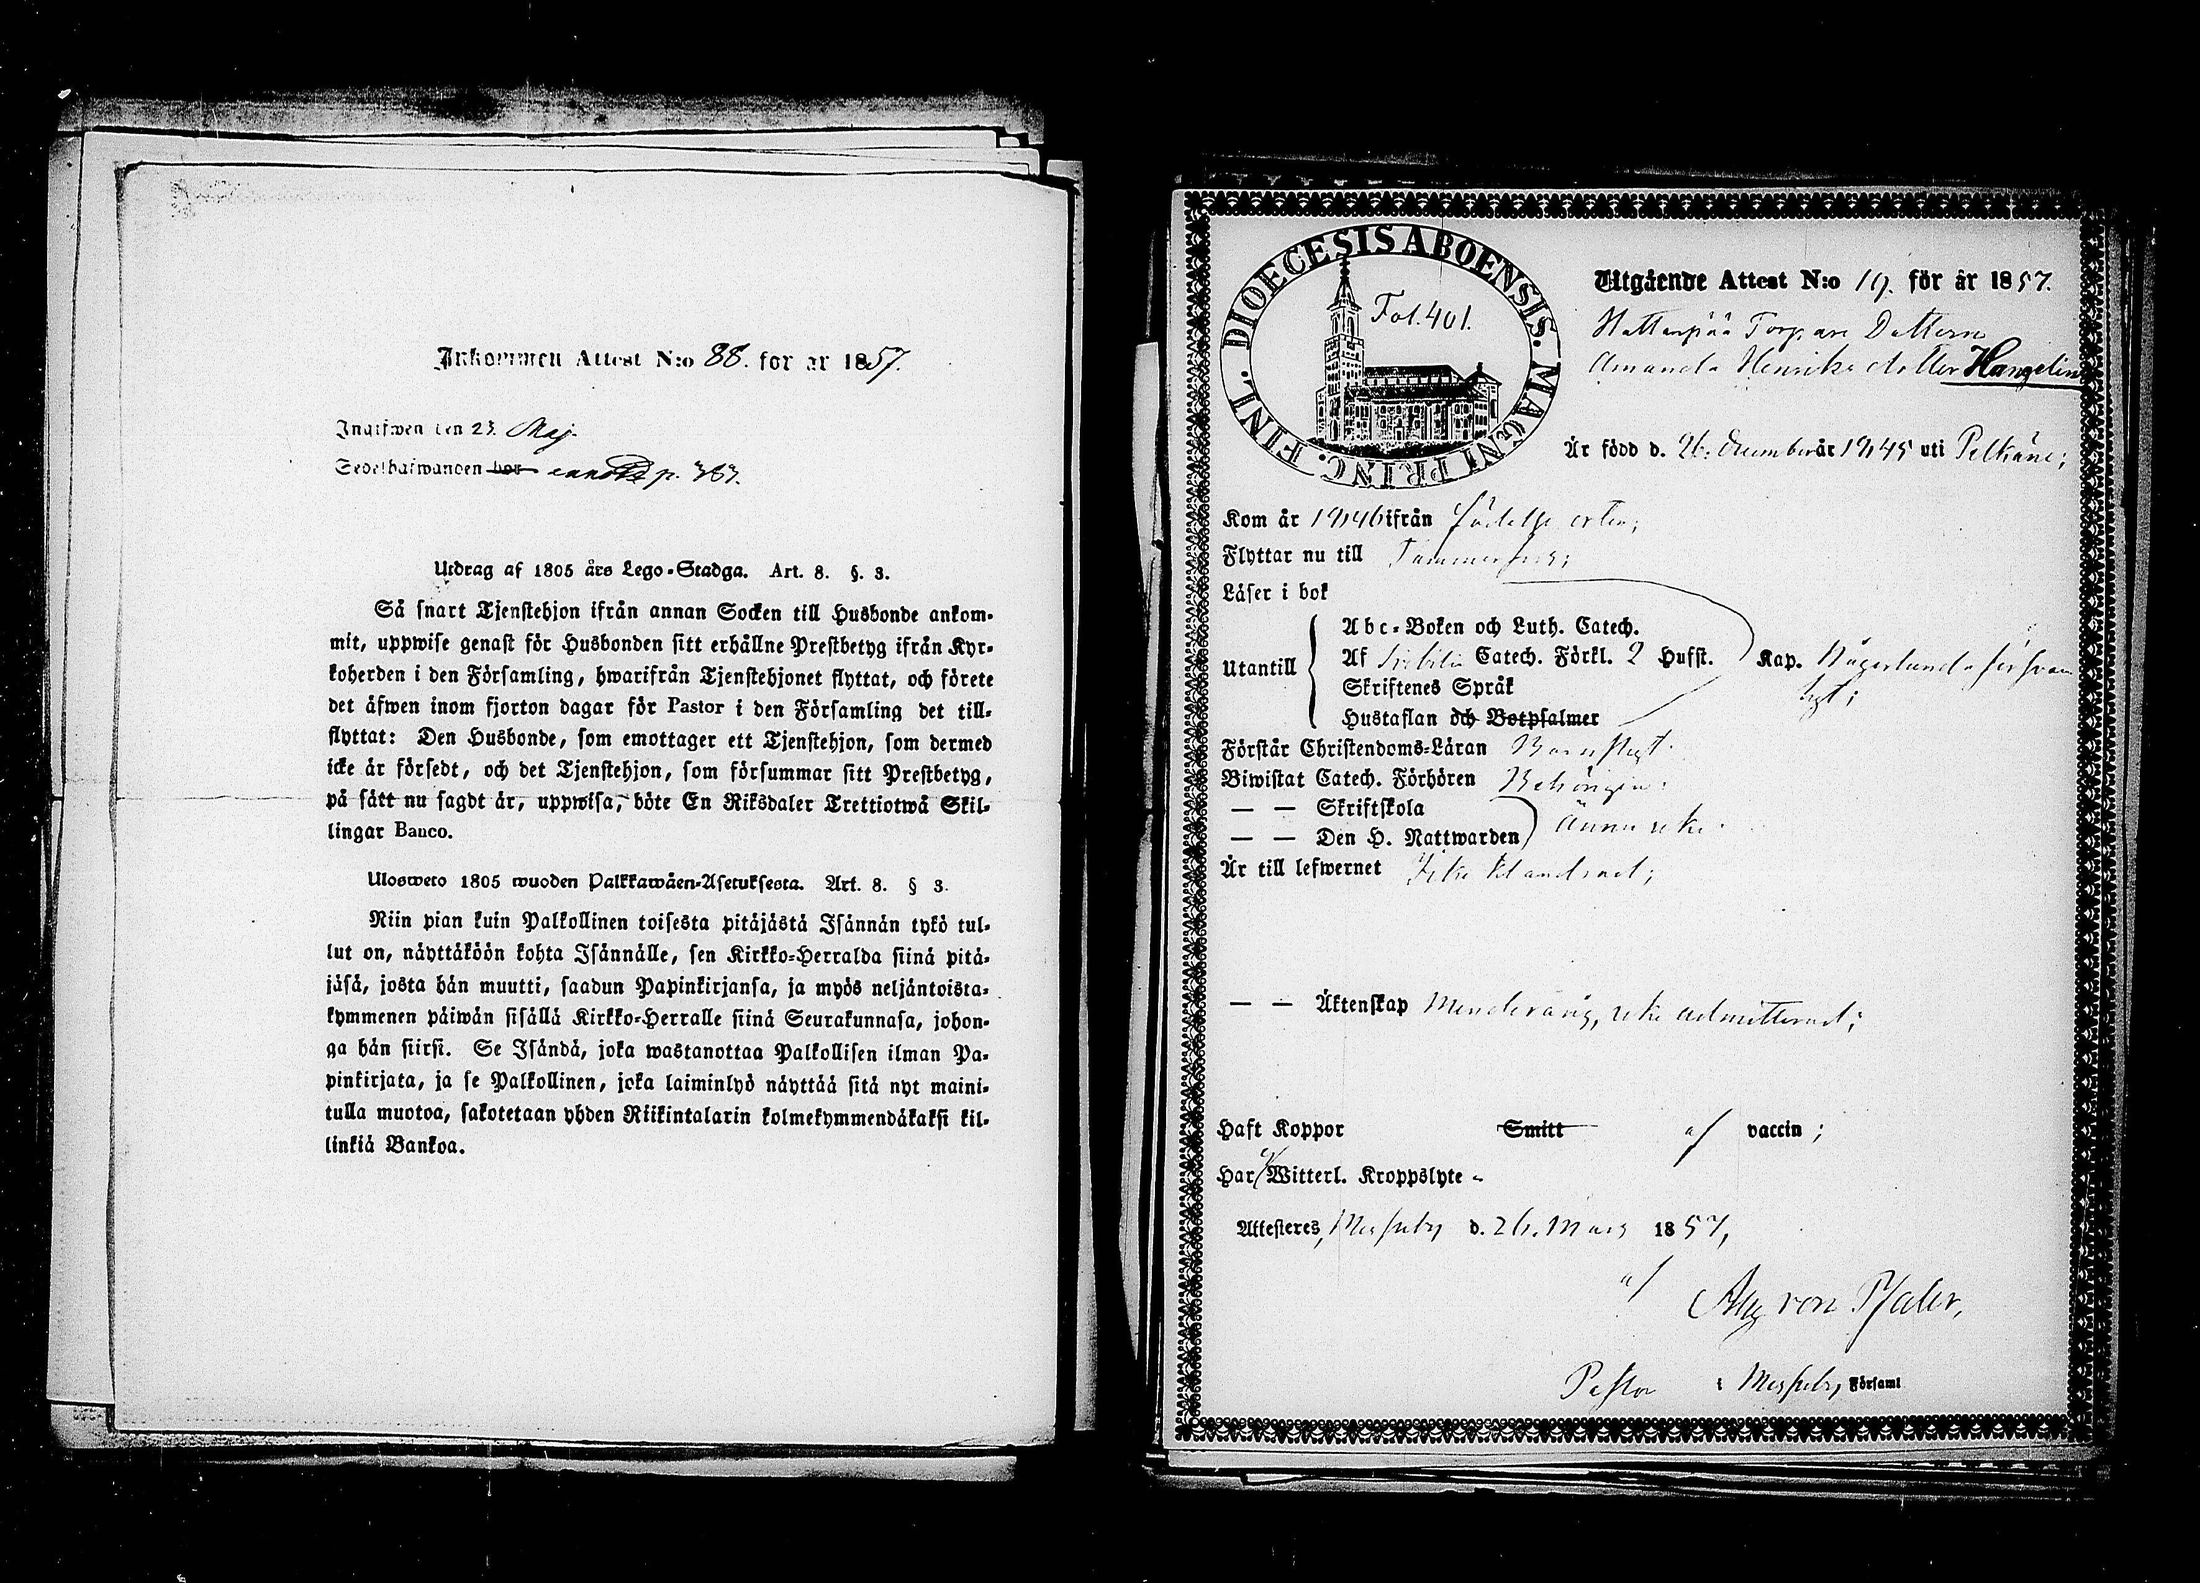 Inkommen Attest N:o 88. för år 1857.
Ingifwen den 23. Maj.
Sedelhafwanden bor p. 383.
Utdrag af 1805 års Lego-Stadga. Art. 8. §. 3.
Så snart Tjenstehjon ifrån annan Socken till Husbonde ankom-
mit, uppwise genast för Husbonden sitt erhållne Prestbetyg ifrån Kyr-
koherden i den Församling, hwarifrån Tjenstehjonet flyttat, och förete
det äfwen inom fjorton dagar för Pastor i den Församling det till-
flyttat: Den Husbonde, som emottager ett Tjenstehjon, som dermed
icke är försedt, och det Tjenstehjon, som försummar sitt Prestbetyg,
på sätt nu sagdt är, uppwisa, böte En Riksdaler Trettiotwå Skil-
lingar Banco.
Ulosweto 1805 wuoden Palkkawäen-Asetuksesta. Art. 8. § 3.
Niin pian kuin Palkollinen toisesta pitäjästä Isännän tykö tul-
lut on, näyttäköön kohta Isännälle, sen Kirkko-Herralda siinä pitä-
jäsä, josta hän muutti, saadun Papinkirjansa, ja myös neljäntoista-
kymmenen päiwän sisällä Kirkko-Herralle siinä Seurakunnasa, johon-
ga hän siirsi. Se Isändä, joka wastanottaa Palkollisen ilman Pa-
pinkirjata, ja se Palkollinen, joka laiminlyö näyttää sitä nyt maini-
tulla muotoa, sakotetaan yhden Riikintalarin kolmekymmendäkaksi kil-
linkiä Bankoa.
DIOECESIS ABOENSIS. MAGNI PRINC. FINL.
Fol. 401.
Utgående Attest N:o 19. för år 1857.
Hattanpää Torpare Dottern
Amanda Henriks dotter Hangelin
Är född d. 26. December år 1845 uti Pelkäne;
Kom år 1846 ifrån födelse orten;
Flyttar nu till Tammerfors;
Läser i bok
Utantill
Abc-Boken och Luth. Catech.
Af Svebilii Catech. Förkl. 2 Hufst.
Skriftenes Språk
Hustaflan och Botpsalmer
Kap. Någorlunda försvar
ligt;
Förstår Christendoms-Läran Barnsligt.
Biwistat Catech. Förhören Behörigen.
— — Skriftskola
— — Den H. Nattwarden
ännu icke.
Är till lefwernet Icke klandrad;
— — Äktenskap Minderårig, icke admitterad;
Haft Koppor Smitt af vaccin;
Har ej Witterl. Kroppslyte -
Attesteras, Messuby d. 26. Mars 1857,
af
Aug von Pfaler,
Pastor i Messuby Församl